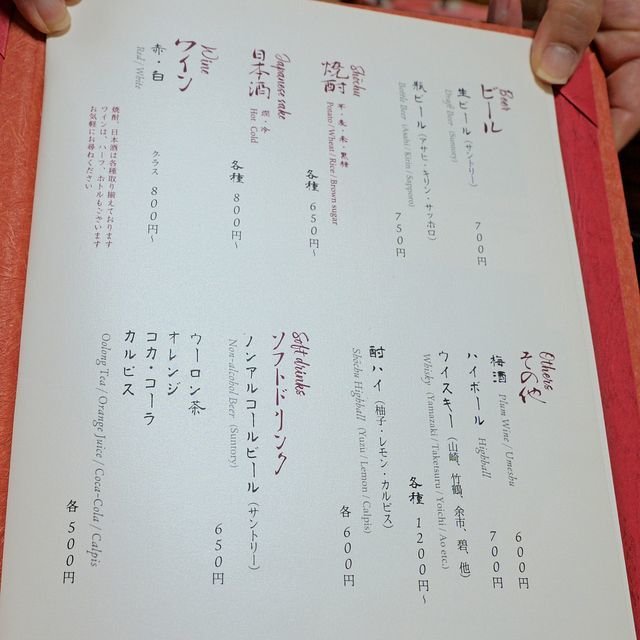 Beer
ビール
生ビール（サントリー）
Draft Beer (Suntory)
700円
瓶ビール（アサヒ・キリン・サッポロ）
Bottle Beer (Asahi / Kirin / Sapporo)
750円
Shōchu
焼酎
芋・麦・米・黒糖
Potato / Wheat / Rice / Brown sugar
各種 650円〜
Japanese sake
日本酒
燗・冷
Hot Cold
各種 800円〜
Wine
ワイン
赤・白
Red / White
グラス 800円〜
焼酎、日本酒は各種取り揃えております
ワインは、ハーフ、ボトルもございます
お気軽にお尋ねください
Others
その他
梅酒 Plum Wine / Umeshu
600円
ハイボール Highball
700円
ウイスキー（山崎、竹鶴、余市、碧、他）
Whisky (Yamazaki / Taketsuru / Yoichi / Ao etc.)
各種 1200円〜
酎ハイ（柚子・レモン・カルピス）
Shōchu Highball (Yuzu / Lemon / Calpis)
各 600円
Soft drinks
ソフトドリンク
ノンアルコールビール（サントリー）
Non-alcohol Beer (Suntory)
650円
ウーロン茶
オレンジ
コカ・コーラ
カルピス
Oolong Tea / Orange Juice / Coca-Cola / Calpis
各 500円